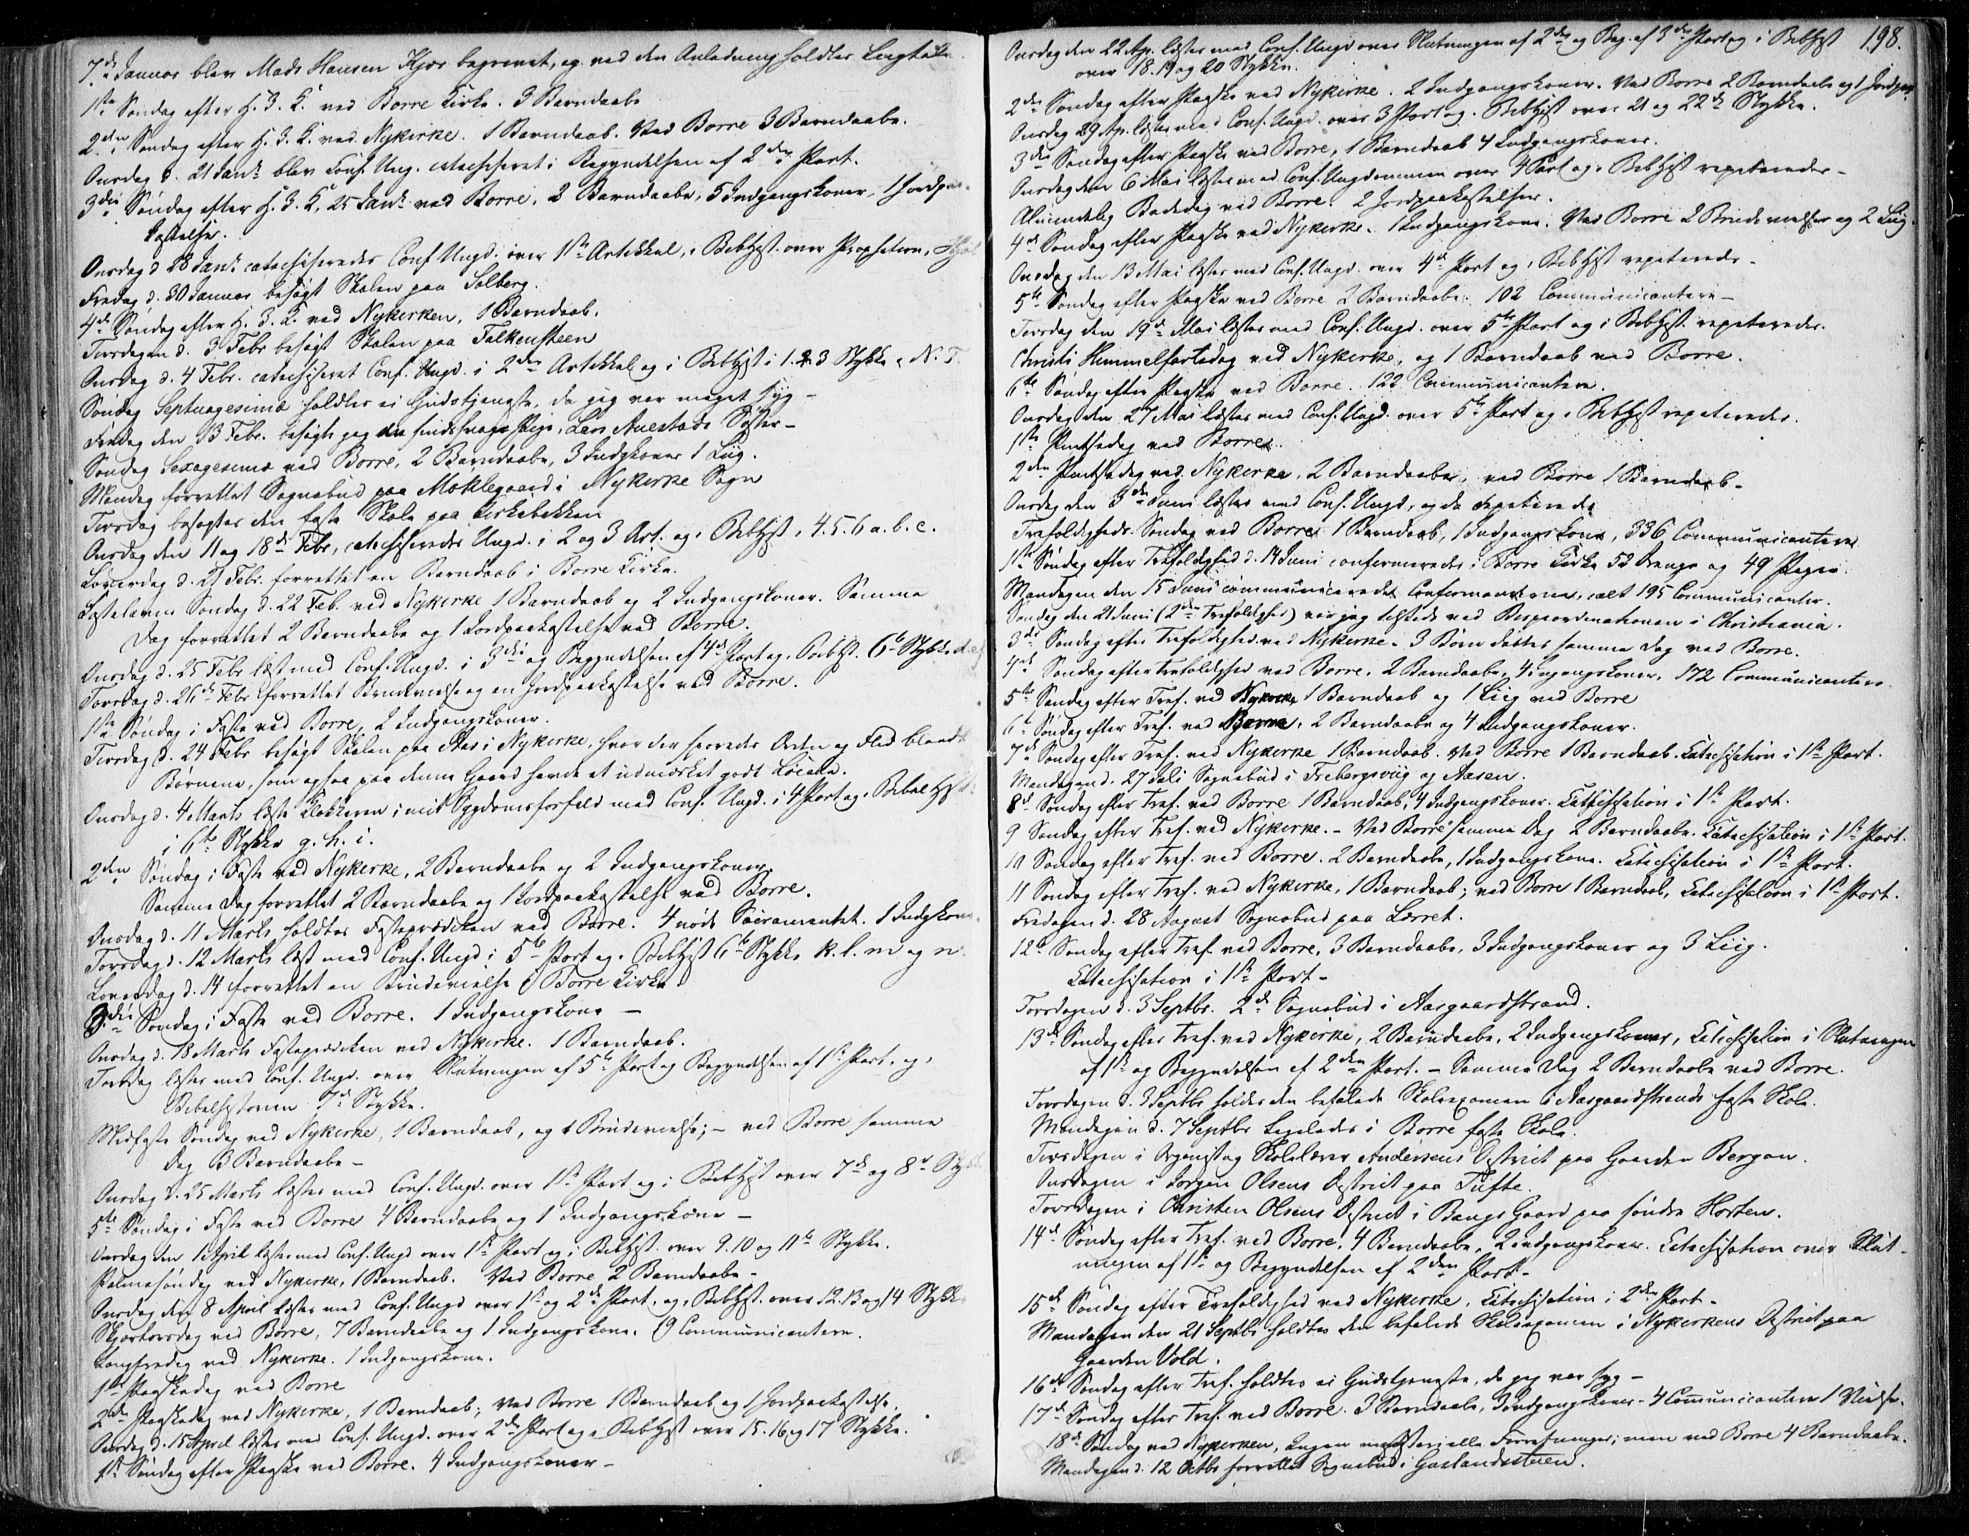 7de Januar blev Mads Hansen Kjær begravet, og ved den Anledning holdtes Liigtale
1ste Søndag efter H. 3. K. ved Borre Kirke. 3 Barndaabe
2den Søndag efter H. 3. K. ved Nykirke. 1 Barndaab. Ved Borre 3 Barndaabe.
Onsdag d. 21 Janr. blev Conf. Ung. catechiseret i Begyndelsen af 2den Part.
3die Søndag efter H. 3. K. 25 Janr. ved Borre, 2 Barndaabe, 5 Indgangskoner, 1 Jordpaa-
kastelse.
Onsdag d. 28 Janr. catechiseredes Conf. Ungd. over 1ste Artikkel, i Bibhist. over Propheterne,
Fredag d. 30 Januar besøgt Skolen paa Solberg.
4de Søndag efter H. 3. K. ved Nykirken, 1 Barndaab.
Tirsdagen d. 3 Febr. besøgt Skolen paa Falkensteen
Onsdag d. 4 Febr. catechiseret Conf. Ungd. i 2den Artikkel og i Bibhist i 1. 2. 3 Stykke N. T.
Søndag Septuagesima holdtes ei Gudstjeneste, da jeg var meget syg –
Fredag den 13 Febr. besøgte jeg en sindssvag Pige, Lars Auestads Søster –
Søndag Sexagesima ved Borre, 2 Barndaabe, 3 Indgkoner 1 Liig.
Mandag forrettet Sognebud paa Moklegaard i Nykirke Sogn
Tirsdag besøgtes den faste Skole paa Kirkebakken
Onsdag den 11 og 18de Febr. catechiseredes Ungd. i 2 og 3 Art. og i Bibhist. 4. 5. 6 a. b. c.
Løverdag d. 21 Febr. forrettet en Barndaab i Borre Kirke.
Fastelavns Søndag d. 22 Feb. ved Nykirke 1 Barndaab og 2 Indgangskoner. Samme
Dag forrettet 2 Barndaabe og 1 Jordpaakastelse ved Borre.
Onsdag d. 25 Febr. læst med Conf. Ungd. i 3die og Begyndelsen af 4de Part og i Bibhist. 6te Stykke d. e. f.
Torsdag d. 26de Febr. forrettet Brudevielse og en Jordpaakastelse ved Borre.
1ste Søndag i Faste ved Borre, 2 Indgangskoner.
Tirsdag d. 24 Febr. besøgt Skolen paa Aas i Nykirke, hvor der sporedes Orden og Flid blandt
Børnene, som ogsaa paa denne Gaard havde et udmærket godt Locale.
Onsdag d. 4 Marts læste Klokkeren i mit Sygdomsforfald med Conf. Ungd. i 4 Part og i Bibelhist.
i 6te Stykke g. h. i.
2den Søndag i Faste ved Nykirke, 2 Barndaabe og 2 Indgangskoner.
Samme Dag forrettet 2 Barndaabe og 1 Jordpaakastelse ved Borre.
Onsdag d. 11 Marts holdtes Fasteprædiken ved Borre. 4 nøde Sacramentet. 1 Indgkone.
Torsdag d. 12 Marts læst med Conf. Ungd. i 5te Part og i Bibhist 6te Stykke k. l. m og n.
Løverdag d. 14 forrettet en Brudevielse i Borre Kirke
3die Søndag i Faste ved Borre. 1 Indgangskone –
Onsdag d. 18 Marts Fasteprædiken ved Nykirke. 1 Barndaab.
Torsdag læstes med Conf. Ungd. over Slutningen af 5te Part og Begyndelsen af 1ste Part, og i
Bibelhistorien 7de Stykke.
Midfaste Søndag ved Nykirke, 1 Barndaab, og 1 Brudevielse; – ved Borre samme
Dag 3 Barndaabe –
Onsdag d. 25 Marts læstes med Conf. Ungd. over 1ste Part og i Bibhist over 7de og 8de Stykke
5te Søndag i Faste ved Borre 4 Barndaabe og 1 Indgangskone –
Onsdag den 1 April læstes med Conf. Ungd over 1ste Part og i Bibhist. over 9. 10 og 11te Stykke.
Palmesøndag ved Nykirke, 1 Barndaab. Ved Borre 2 Barndaabe –
Onsdag den 8 April læstes med Conf. Ungd over 1ste og 2de Part, og i Bibhist. over 12. 13 og 14 Stykke
Skjærtorsdag ved Borre, 7 Barndaabe og 1 Indgangskone. 19 Communicantere.
Langfredag ved Nykirke. 1 Indgangskone.
1ste Paaskedag ved Borre
2den Paaskedag ved Nykirke, 1 Barndaab; ved Borre 1 Barndaab og 1 Jordpaakastelse.
Onsdag d. 15 April læstes med Conf. Ungd. over 2den Part og i Bibhist over 15. 16 og 17 Stykke.
1ste Søndag efter Paaske ved Borre. 4 Indgangskoner –
198.
Onsdag den 22 Ap. læstes med Conf. Ungd over Slutningen af 2den og Beg. af 3die Part og i Bibhist
over 18. 19 og 20 Stykke.
2den Søndag efter Paaske ved Nykirke. 2 Indgangskoner. Ved Borre 2 Barndaabe og 1 Jordpaa.
Onsdag 29 Ap. læstes med Conf. Ungd. over 3 Part og i Bibhist over 21 og 22de Stykke.
3die Søndag efter Paaske ved Borre, 1 Barndaab 4 Indgangskoner.
Onsdag den 6 Mai læstes med Conf. Ungdommen over 4 Part og i Bibhist repeteredes –
Almindelig Bededag ved Borre. 2 Jordpaakastelser.
4de Søndag efter Paaske ved Nykirke. 1 Indgangskone. Ved Borre 2 Brudevielser og 2 Liig.
Onsdag den 13 Mai læstes med Conf. Ungd. over 4de Part og i Bibhist repeteredes –
5te Søndag efter Paaske ved Borre 2 Barndaabe. 102 Communicantere –
Torsdag den 19de Mai læstes med Conf. Ungd. over 5te Part og i Bibhist. repeteredes.
Christi Himmelfartsdag ved Nykirke, og 1 Barndaab ved Borre.
6te Søndag efter Paaske ved Borre. 122 Communicantere.
Onsdag den 27 Mai læstes med Conf. Ungd. over 5te Part og i Bibhist repeteredes.
1ste Pintsedag ved Borre.
2den Pintsedag ved Nykirke, 2 Barndaabe, ved Borre 1 Barndaab –
Onsdag den 3die Juni læstes med Conf. Ungd. og da repeteredes
Trefoldigheds Søndag ved Borre. 1 Barndaab, 1 Indgangskone, 336 Communicantere
1ste Søndag efter Trefoldighed d. 14 Juni confirmeredes i Borre Kirke 52 Drenge og 49 Piger.
Mandagen den 15 Juni communiceredet Confirmanterne, ialt 195 Communicanter.
Søndag den 21 Juni (2den Trefoldighed) var jeg tilstede ved Bispeordinationen i Christiania.
3die Søndag efter Trefoldighed ved Nykirke – 3 Børn døbtes samme Dag ved Borre.
4de Søndag efter Trefoldighed ved Borre. 2 Barndaabe, 4 Ingangskoner, 172 Communicantere
5te Søndag efter Tref. ved Nykirke, 1 Barndaab og 1 Liig ved Borre
6te Søndag efter Tref. ved Borre, 2 Barndaabe og 4 Indgangskoner.
7de Søndag efter Tref. ved Nykirke 1 Barndaab. Ved Borre 1 Barndaab. Catechisation i 1ste Part.
Mandagen d. 27 Juli Sognebud i Frebergsviig og Aasen.
8de Søndag efter Tref. ved Borre 1 Barndaab, 4 Indgangskoner. Catechisation i 1ste Part.
9 Søndag efter Tref. ved Nykirke. – Ved Borre samme Dag 2 Barndaabe. Catechisation i 1ste Part.
10 Søndag efter Tref. ved Borre. 2 Barndaabe, 1 Indgangskone. Catechisation i 1ste Part.
11 Søndag efter Tref. ved Nykirke, 1 Barndaab; ved Borre 1 Barndaab, Catechisation i 1ste Part.
Fredagen d. 28 August Sognebud paa Lørret.
12te Søndag efter Tref. ved Borre, 3 Barndaabe, 3 Indgangskoner og 3 Liig.
Catechisation i 1ste Part –
Torsdagen d. 3 Septbr. 2de Sognebud i Aasgaardstrand.
13de Søndag efter Tref. ved Nykirke, 2 Barndaabe, 2 Indgangskoner, Catechisation i Slutningen
af 1ste og Begyndelsen af 2den Part. – Samme Dag 2 Barndaabe ved Borre.
Torsdagen d. 3 Septbr holdes den befalede Skoleexamen i Aasgaardstrands faste Skole.
Mandagen d. 7 Septbr ligeledes i Borre faste Skole.
Tirsdagen i Organist og Skolelærer Andersens District paa Gaarden Bergan.
Onsdagen i Jørgen Olsens District paa Tufte.
Torsdagen i Christen Olsens District i Bangs Gaard paa søndre Horten.
14de Søndag efter Tref. ved Borre, 4 Barndaabe, 2 Indgangskoner. Catechisation over Slut-
ningen af 1ste og Begyndelsen af 2den Part –
15de Søndag efter Trefoldighed ved Nykirke, Catechisation i 2den Part –
Mandagen den 21 Septbr holdtes den befalede Skoleexamen i Nykirkens District paa
Gaarden Vold.
16de Søndag efter Tref. holdtes ei Gudstjeneste, da jeg var syg –
17de Søndag efter Tref. ved Borre. 3 Barndaabe, Indgangskoner – 4 Communicantere 1 Vielse.
18de Søndag ved Nykirken, ingen ministerielle Forretninger; men ved Borre 4 Barndaabe.
Mandagen d. 12 Octbr forrettet Sognebud i Gaslandsstuen.